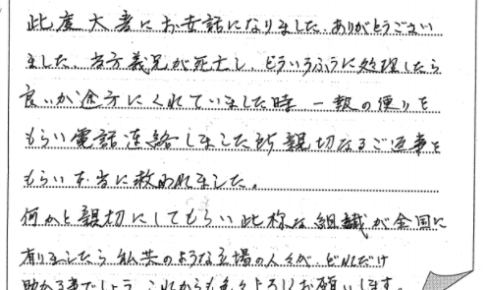 此度大変にお世話になりました、ありがとうござい
ました、当方義兄が死亡し、どういうふうに処理したら
良いか途方にくれていました時 一報の便りを
もらい電話連絡しました所親切なるご返事を
もらい本当に救われました。
何かと親切にしてもらい此様な組織が全国に
有りましたら私共のような立場の人々が、どれだけ
助かる事でしょう、これからも色々よろしくお願いします。